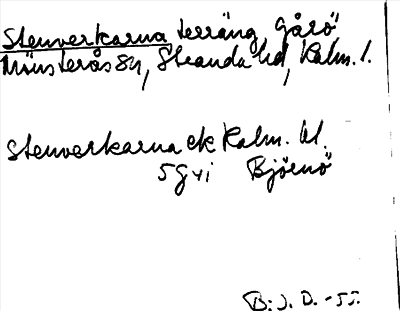 Stenverkarna terräng, Gårö
Mönsterås sn, Stranda hd, Kalm. l.
Stenverkarna ek Kalm. bl.
5 G vi Björnö
B. J. D. -55.